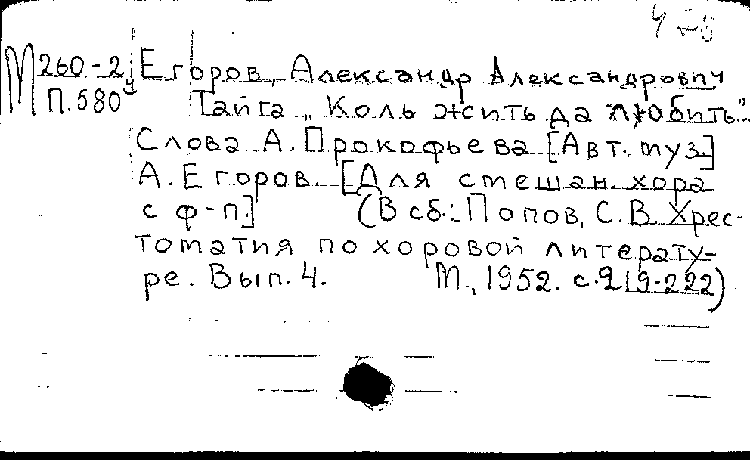 М 260-2 Егоров, Александр Александрович
П.580 Тайга „Коль жить да любить"..
Слова А. Прокофьева [Авт. муз.]
А. Егоров. [Для смешан. хора
с ф-п.] (В сб.: Попов, С. В. Хрес-
томатия по хоровой литерату-
ре. Вып. 4. М., 1952. с. 219-222)